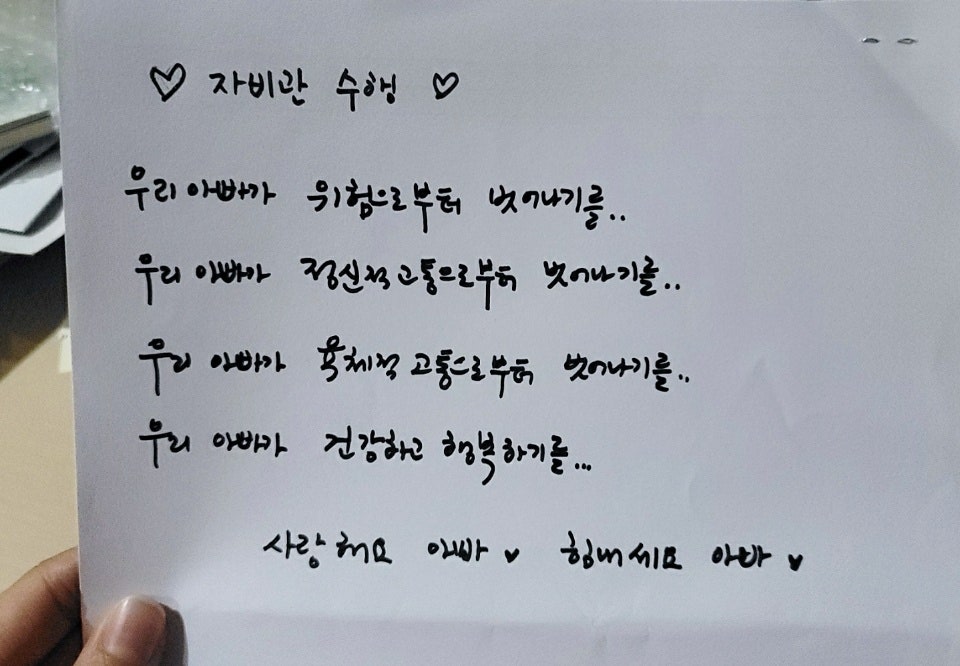 ♡ 자비관 수행 ♡
우리 아빠가 위험으로부터 벗어나기를..
우리 아빠가 정신적 고통으로부터 벗어나기를..
우리 아빠가 육체적 고통으로부터 벗어나기를..
우리 아빠가 건강하고 행복하기를...
사랑해요 아빠 ♥ 힘내세요 아빠 ♥